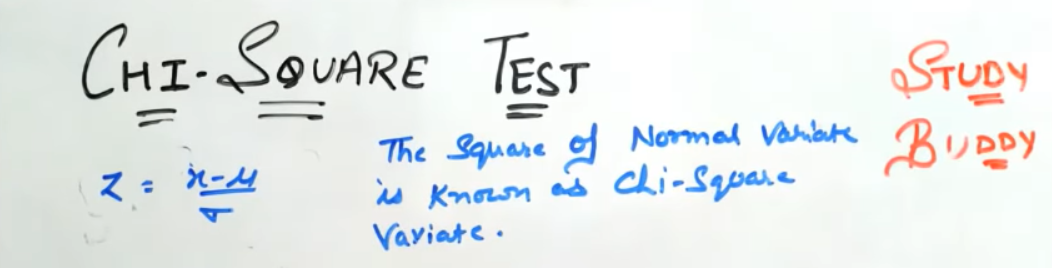 CHI-SQUARE TEST
STUDY
BUDDY
Z = x-μ/σ
The Square of Normal Variate
is Known as Chi-Square
Variate.